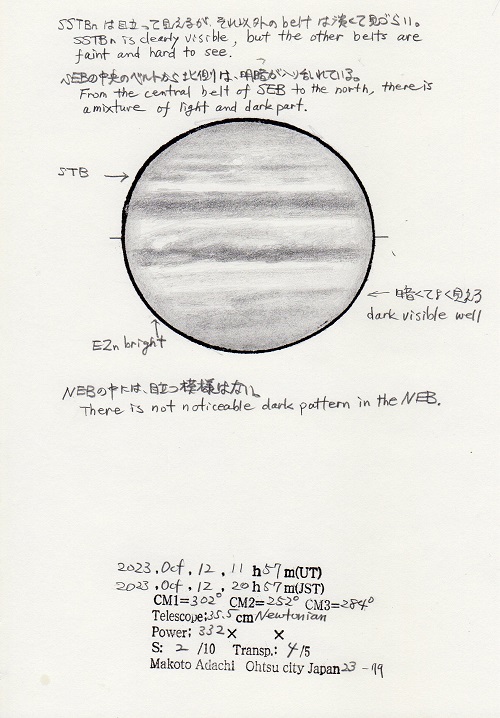 SSTBn は目立って見えるが、それ以外の belt は淡くて見づらい。
SSTBn is clearly visible, but the other belts are
faint and hard to see.
の中央のベルトから北側は、明暗が入り乱れている。
From the central belt of SEB to the north, there is
a mixture of light and dark part.
STB
暗くてよく見える
dark visible well
EZn bright
NEBの中には、目立つ模様はない。
There is not noticeable dark pattern in the NEB.
2023, Oct, 12, 11 h57 m(UT)
2023, Oct, 12, 20 h57 m(JST)
CM1=302° CM2=252° CM3=284°
Telescope:35.5cm Newtonian
Power: 332× ×
S: 2 /10 Transp.: 4/5
Makoto Adachi Ohtsu city Japan 23-79